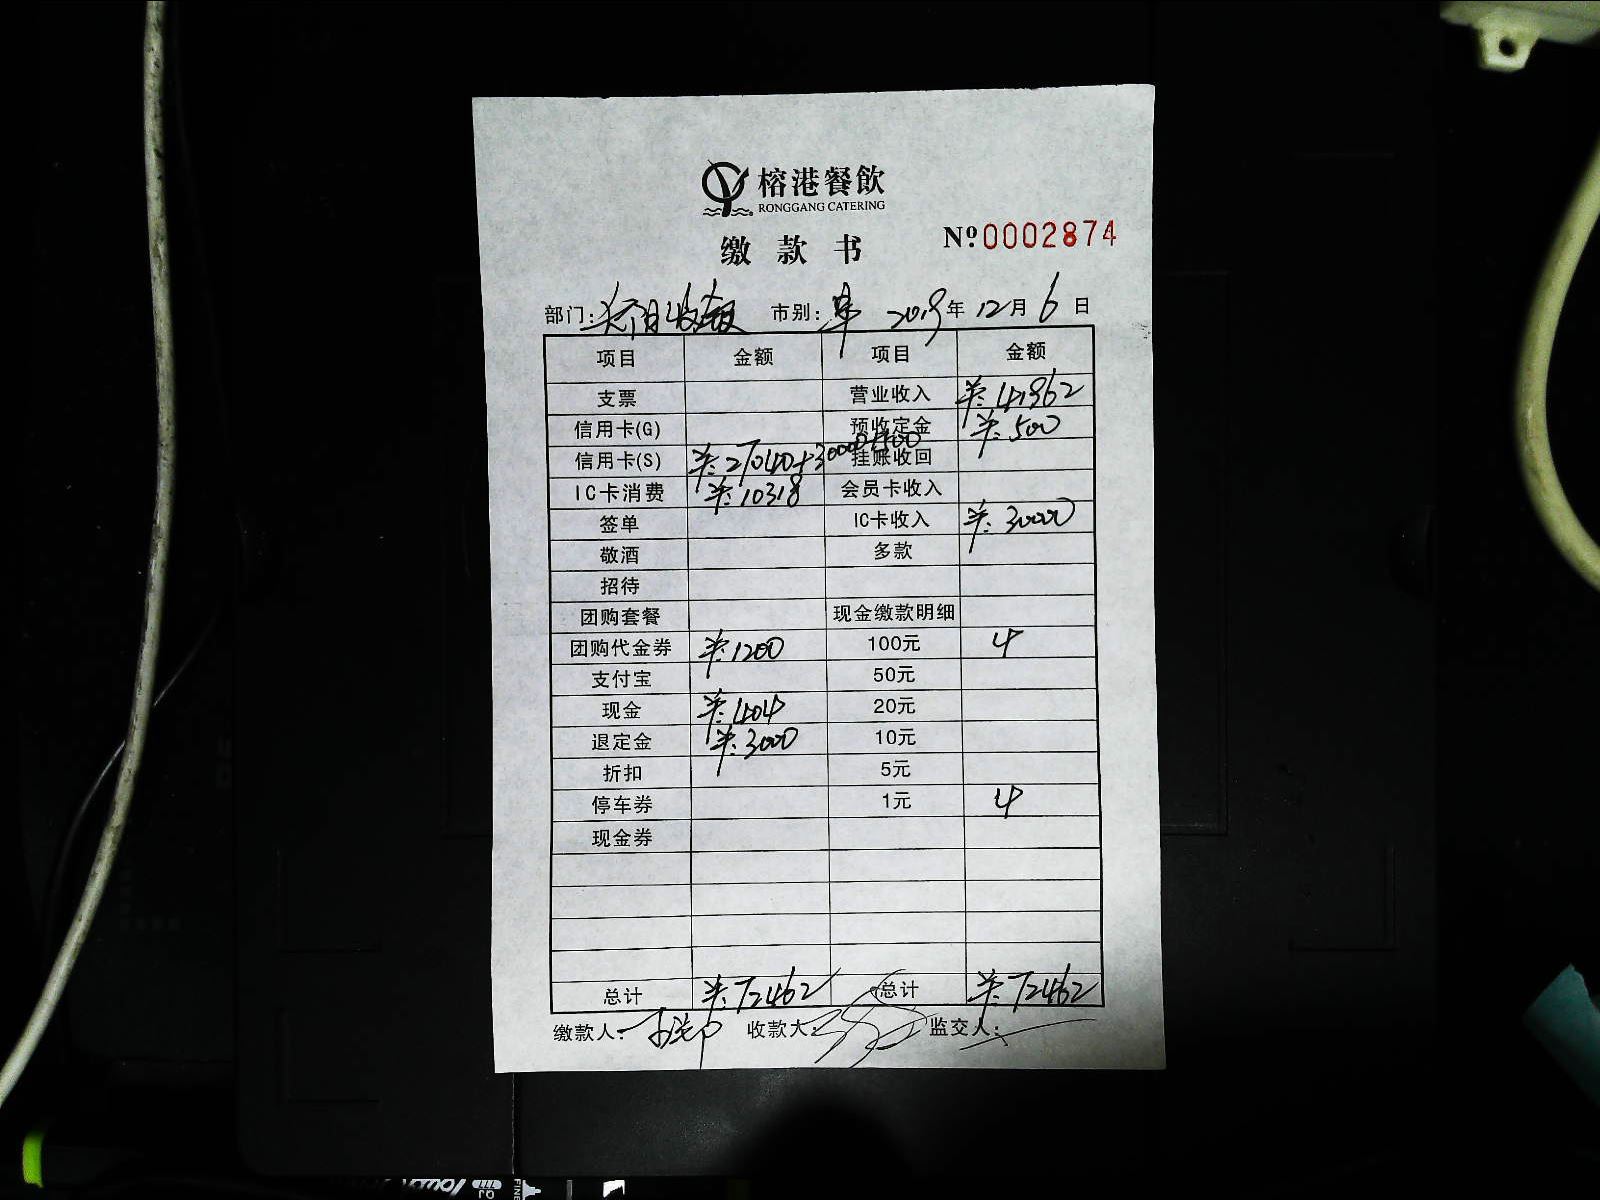 榕港餐飲
RONGGANG CATERING
缴款书
Nº0002874
部门: 收银 市别: 2019年12月6日
项目 金额 项目 金额
支票 营业收入 ¥:41962
信用卡(G) 预收定金 ¥:500
信用卡(S) ¥:27040+30000+500 挂账收回
IC卡消费 ¥:10318 会员卡收入
签单 IC卡收入 ¥:30000
敬酒 多款
招待
团购套餐 现金缴款明细
团购代金券 ¥:1200 100元 4
支付宝 50元
现金 ¥:404 20元
退定金 ¥:3000 10元
折扣 5元
停车券 1元 4
现金券
总计 ¥:72462 总计 ¥:72462
缴款人: 收款人: 监交人: